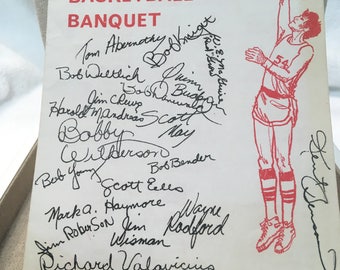 BASKETBALL
BANQUET
Tom Abernethy
Bob Knight
Bob Weltlich
Quinn Buckner
Bob Donewald
Jim Crews
Harold Andreas
Scott May
Bobby Wilkerson
Bob Bender
Bob Young
Scott Eells
Mark A. Haymore
Wayne Radford
Jim Roberson
Jim Wisman
Richard Valavicius
Kent Benson
54